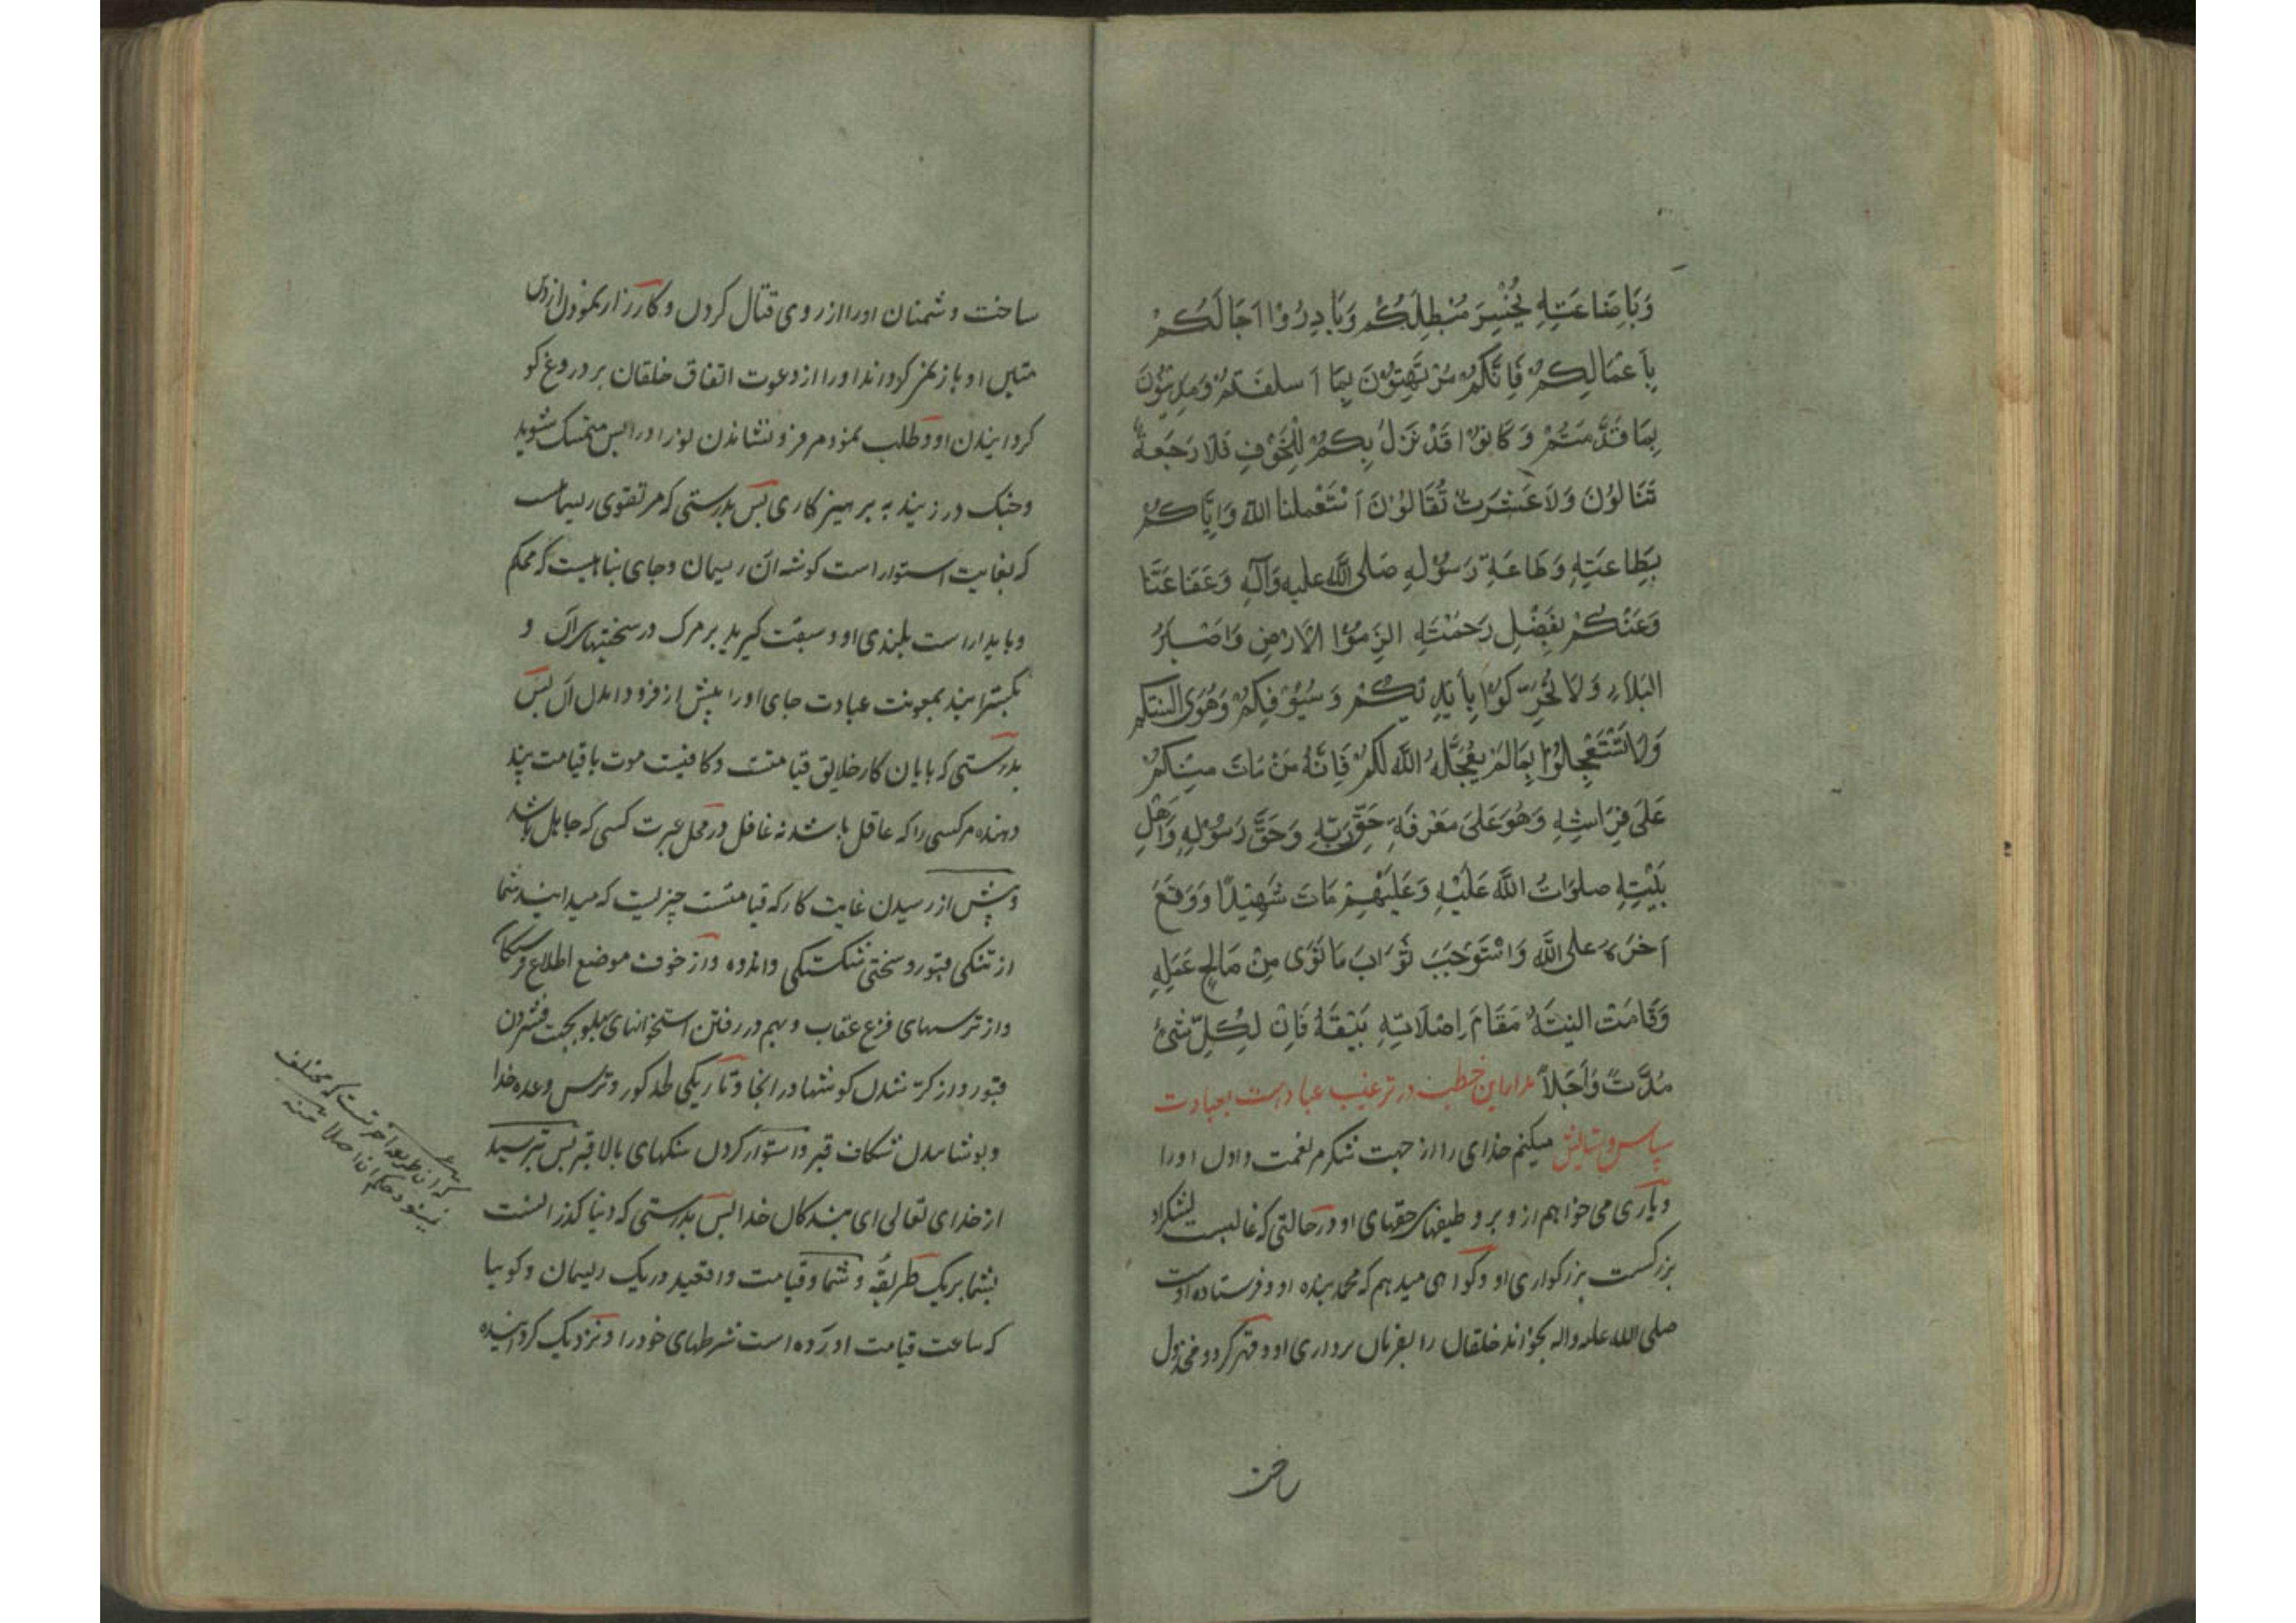 وَبِاِضَاعَتِهِ يُخْسِرَ مُبْطِلَكُمْ وَبَادِرُوْا اَجَالَكُمْ
بِاَعْمَالِكُمْ فَاِنَّكُمْ مُرْتَهِنُوْنَ بِمَا اَسلفَتمْ وَمَدِيْنُوْنَ
بِمَا قَدَّمْتُمْ وَكَانْ قَدْ نَزَلَ بِكُمُ الْمَخُوْفِ فَلَا رَجْعَةً
تَنَالُوْنَ وَلَا عَثْرَتْ تُقَالُوْنَ اَسْتَعْمِلنا اللّٰه وَاِيَّاكُمْ
بِطَاعَتِهِ وَطَاعَةِ رَسُوْلِهِ صَلى اللّٰه عليه وَآلِهِ وَعَفَا عَنَّا
وَعَنْكُمْ بِفَضْلِ رَحْمَتِهِ الزَمُوْا الْاَرْضِ وَاصْبِرُ
البَلَاءِ وَلَا تُحَرِّكُوْا بِاَيْدِيْكُمْ وَسُيُوْفِكُمْ وَهَوَى السنتكم
وَلَا تَسْتَعْجِلُوْا بِمَا لَمْ يُعَجِّلهُ اللّٰه لَكُمْ فَاِنَّهُ مَنْ مَاتَ مِنْكُمْ
عَلَى فِرَاشِهِ وَهُوَ عَلَى مَعْرِفَةِ حَقِّ رَبِّهِ وَحَقَّ رَسُوْلِهِ وَاَهْلِ
بَيْتِهِ صلوَاتُ اللّٰه عَلَيْهِ وَعَلَيْهِمْ مَاتَ شَهِيْدًا وَوَقَعَ
اَجْرَهُ عَلى اللّٰه وَاسْتَوْجَبَ ثَوَابَ مَا نَوَى مِنْ صَالِحِ عَمَلِهِ
وَقَامَتْ النِيَّةُ مَقَامَ اِصْلَاتِهِ بَسَيْفِهُ فَاِنْ لِكُلِّ شَيْءٍ
مُدَّتً وَاَجَلاً مراد این خطبه در ترغیب عبادست بعبادت
سپاس و ستایش میکنم خدای را از جهت شکرم نعمت دادن او را
و یاری می خواهم از و بر وظیفهای حقهای او در حالتی که غالبست لشکر او
بزرکست بزرکواری او و کواهی میدهم که محمد بنده او و فرستاده اوست
صلی الله علیه واله بخواند خلقان را بفرمان برداری او و قهر کرد و مخذول
ساخت
ساخت دشمنان او را از روی قتال کردن و کارزار نمودن از دین
متین او باز نمی کرداند او را از دعوت اتفاق خلقان بر دروغ کو
کردانیدن او و طلب نمودم فرو نشاندن نور او را پس متمسک شوید
و چنک در زنید به پرهیزکاری پس بدرستی که مر تقوی ریسمانست
که بغایت استوار است کوشه ان ریسمان و جای پناهیست که محکم
و پایدار است بلندی او و سبقت کیرید بر مرک در سختیهای آن و
بکسترانید بمعونت عبادت جای او را پیش از فرود امدن آن پس
بدرستی که پایان کار خلایق قیامتست و کافیست موت با قیامت پند
دهنده مر کسی را که عاقل باشد نه غافل و در محل عبرت کسی که جاهل باشد
و پیش از رسیدن غایت کار که قیامتست چیزیست که میدانید شما
از تنکی قبور و سختی شکستکی و اندوه و از خوف موضع اطلاع
و از ترسهای فزع عقاب و بهم در رفتن استخوانهای پهلو بجهت فشردن
قبور و از کر شدن کوشها در انجا و تاریکی لحد کور و ترس وعده خدا
و پوشانیدن شکاف قبر و استوار کردن سنکهای بالا قبر پس بترسید
از خدای تعالی ای بندکان خدا پس بدرستی که دنیا کذرانست
بشما بر یک طریقه و شما و قیامت واقعید در یک ریسمان و کوییا
که ساعت قیامت اورده است شرطهای خود را و نزدیک کرداننده